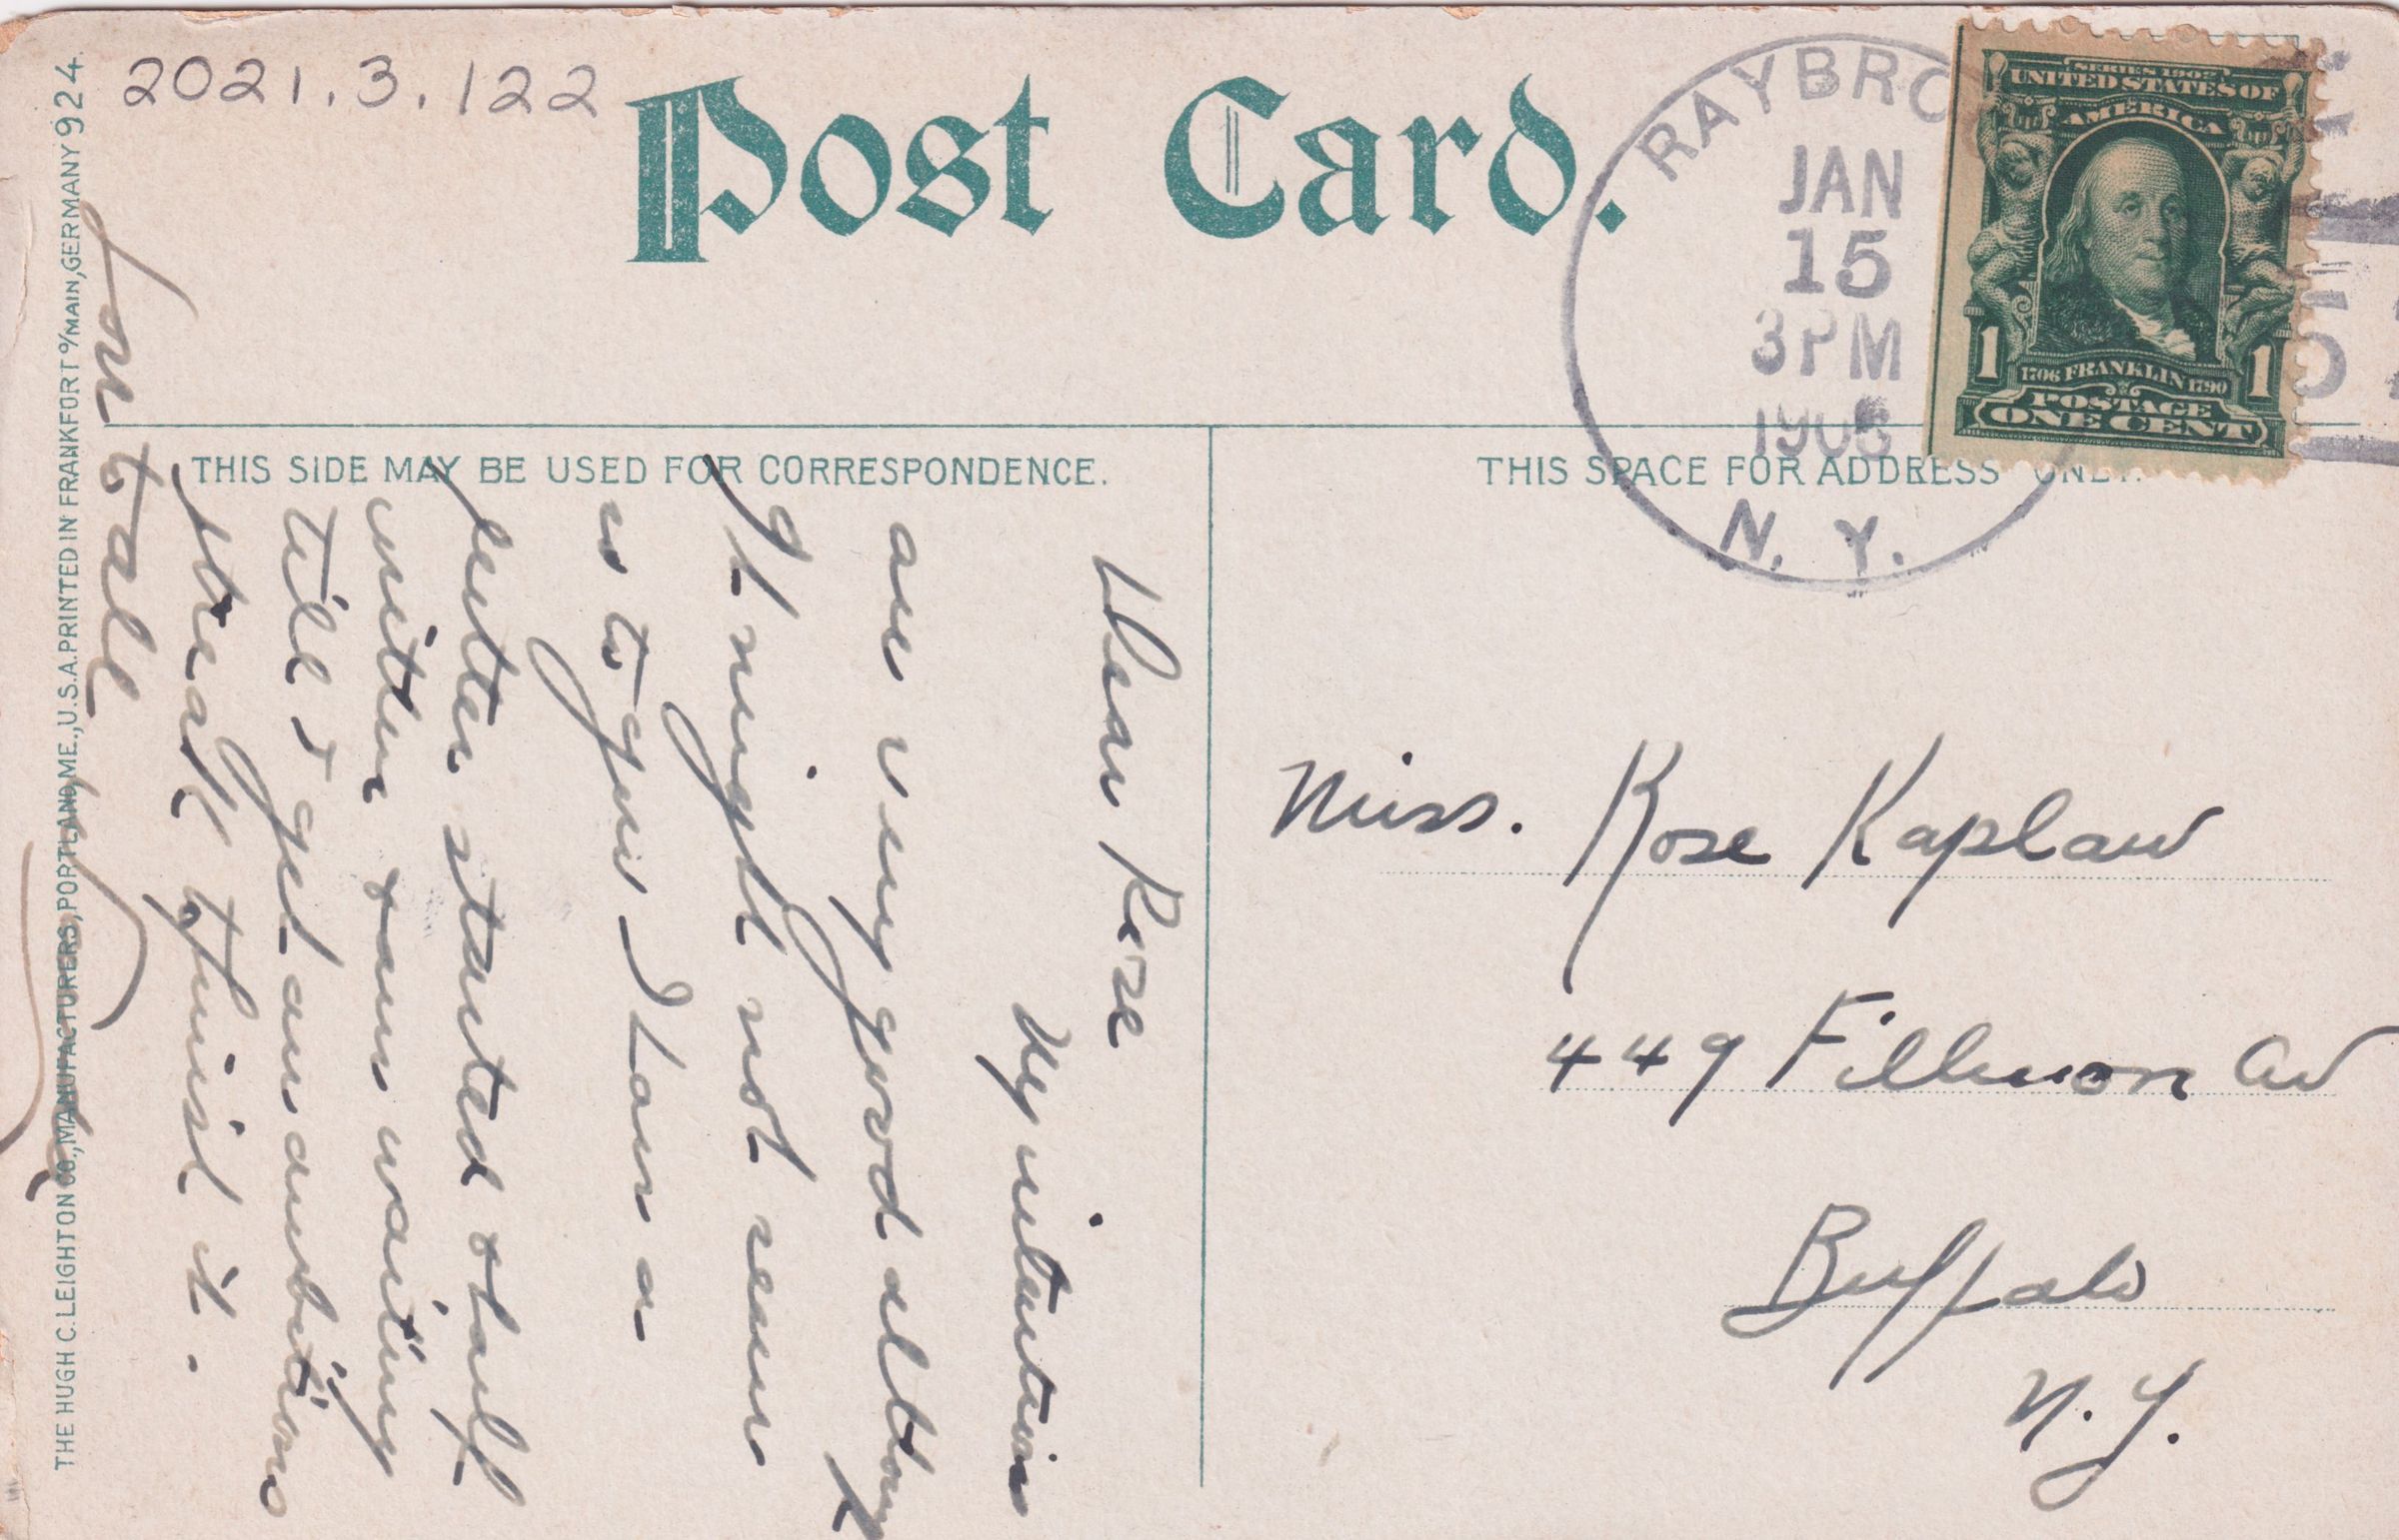 2021.3.122
Post Card.
RAYBRO
JAN
15
3PM
N. Y.
SERIES 1902
UNITED STATES OF
AMERICA
1 1
1706 FRANKLIN 1790
POSTAGE
ONE CENT
THIS SIDE MAY BE USED FOR CORRESPONDENCE.
THIS SPACE FOR ADDRESS ONLY.
THE HUGH C. LEIGHTON CO., MANUFACTURERS, PORTLAND, ME., U.S.A. PRINTED IN FRANKFORT o/MAIN, GERMANY 924.
Dear Rose
My intentions
are very good althoug
it might not seem
so to you I have a
letter started & half
written & am waiting
till I get an ambitious
streak to finish it.
Love to all
Miss. Rose Kaplan
449 Fillmore Av
Buffalo
N.Y.